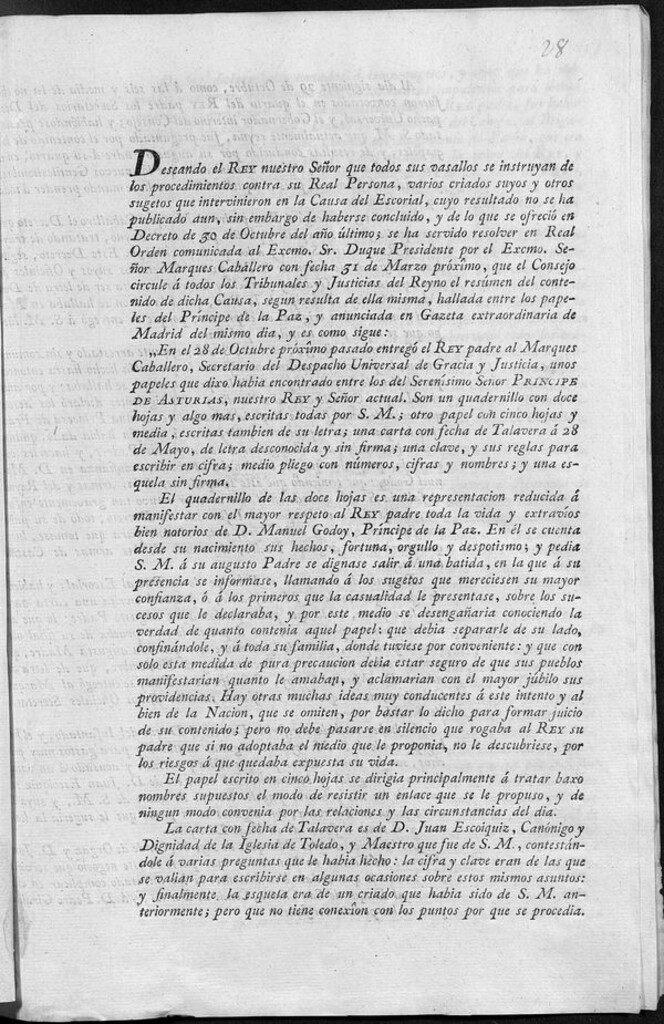 28
Deseando el REY nuestro Señor que todos sus vasallos se instruyan de
los procedimientos contra su Real Persona, varios criados suyos y otros
sugetos que intervinieron en la Causa del Escorial, cuyo resultado no se ha
publicado aun, sin embargo de haberse concluido, y de lo que se ofreció en
Decreto de 30 de Octubre del año último; se ha servido resolver en Real
Orden comunicada al Excmo. Sr. Duque Presidente por el Excmo. Se-
ñor Marques Caballero con fecha 31 de Marzo próxîmo, que el Consejo
circule á todos los Tribunales y Justicias del Reyno el resúmen del conte-
nido de dicha Causa, segun resulta de ella misma, hallada entre los pape-
les del Príncipe de la Paz, y anunciada en Gazeta extraordinaria de
Madrid del mismo dia, y es como sigue:
„En el 28 de Octubre próxîmo pasado entregó el REY padre al Marques
Caballero, Secretario del Despacho Universal de Gracia y Justicia, unos
papeles que dixo habia encontrado entre los del Serenísimo Señor PRÍNCIPE
DE ASTURIAS, nuestro REY y Señor actual. Son un quadernillo con doce
hojas y algo mas, escritas todas por S. M.; otro papel con cinco hojas y
media, escritas tambien de su letra; una carta con fecha de Talavera á 28
de Mayo, de letra desconocida y sin firma; una clave, y sus reglas para
escribir en cifra; medio pliego con números, cifras y nombres; y una es-
quela sin firma.
El quadernillo de las doce hojas es una representacion reducida á
manifestar con el mayor respeto al REY padre toda la vida y extravíos
bien notorios de D. Manuel Godoy, Príncipe de la Paz. En él se cuenta
desde su nacimiento sus hechos, fortuna, orgullo y despotismo; y pedia
S. M. á su augusto Padre se dignase salir á una batida, en la que á su
presencia se informase, llamando á los sugetos que mereciesen su mayor
confianza, ó á los primeros que la casualidad le presentase, sobre los su-
cesos que le declaraba, y por este medio se desengañaria conociendo la
verdad de quanto contenia aquel papel: que debia separarle de su lado,
confinándole, y á toda su familia, donde tuviese por conveniente: y que con
solo esta medida de pura precaucion debia estar seguro de que sus pueblos
manifestarian quanto le amaban, y aclamarian con el mayor júbilo sus
providencias. Hay otras muchas ideas muy conducentes á este intento y al
bien de la Nacion, que se omiten, por bastar lo dicho para formar juicio
de su contenido; pero no debe pasarse en silencio que rogaba al REY su
padre que si no adoptaba el medio que le proponia, no le descubriese, por
los riesgos á que quedaba expuesta su vida.
El papel escrito en cinco hojas se dirigia principalmente á tratar baxo
nombres supuestos el modo de resistir un enlace que se le propuso, y de
ningun modo convenia por las relaciones y las circunstancias del dia.
La carta con fecha de Talavera es de D. Juan Escoiquiz, Canónigo y
Dignidad de la Iglesia de Toledo, y Maestro que fue de S. M., contestán-
dole á varias preguntas que le habia hecho: la cifra y clave eran de las que
se valian para escribirse en algunas ocasiones sobre estos mismos asuntos:
y finalmente la esquela era de un criado que habia sido de S. M. an-
teriormente; pero que no tiene conexîon con los puntos por que se procedia.